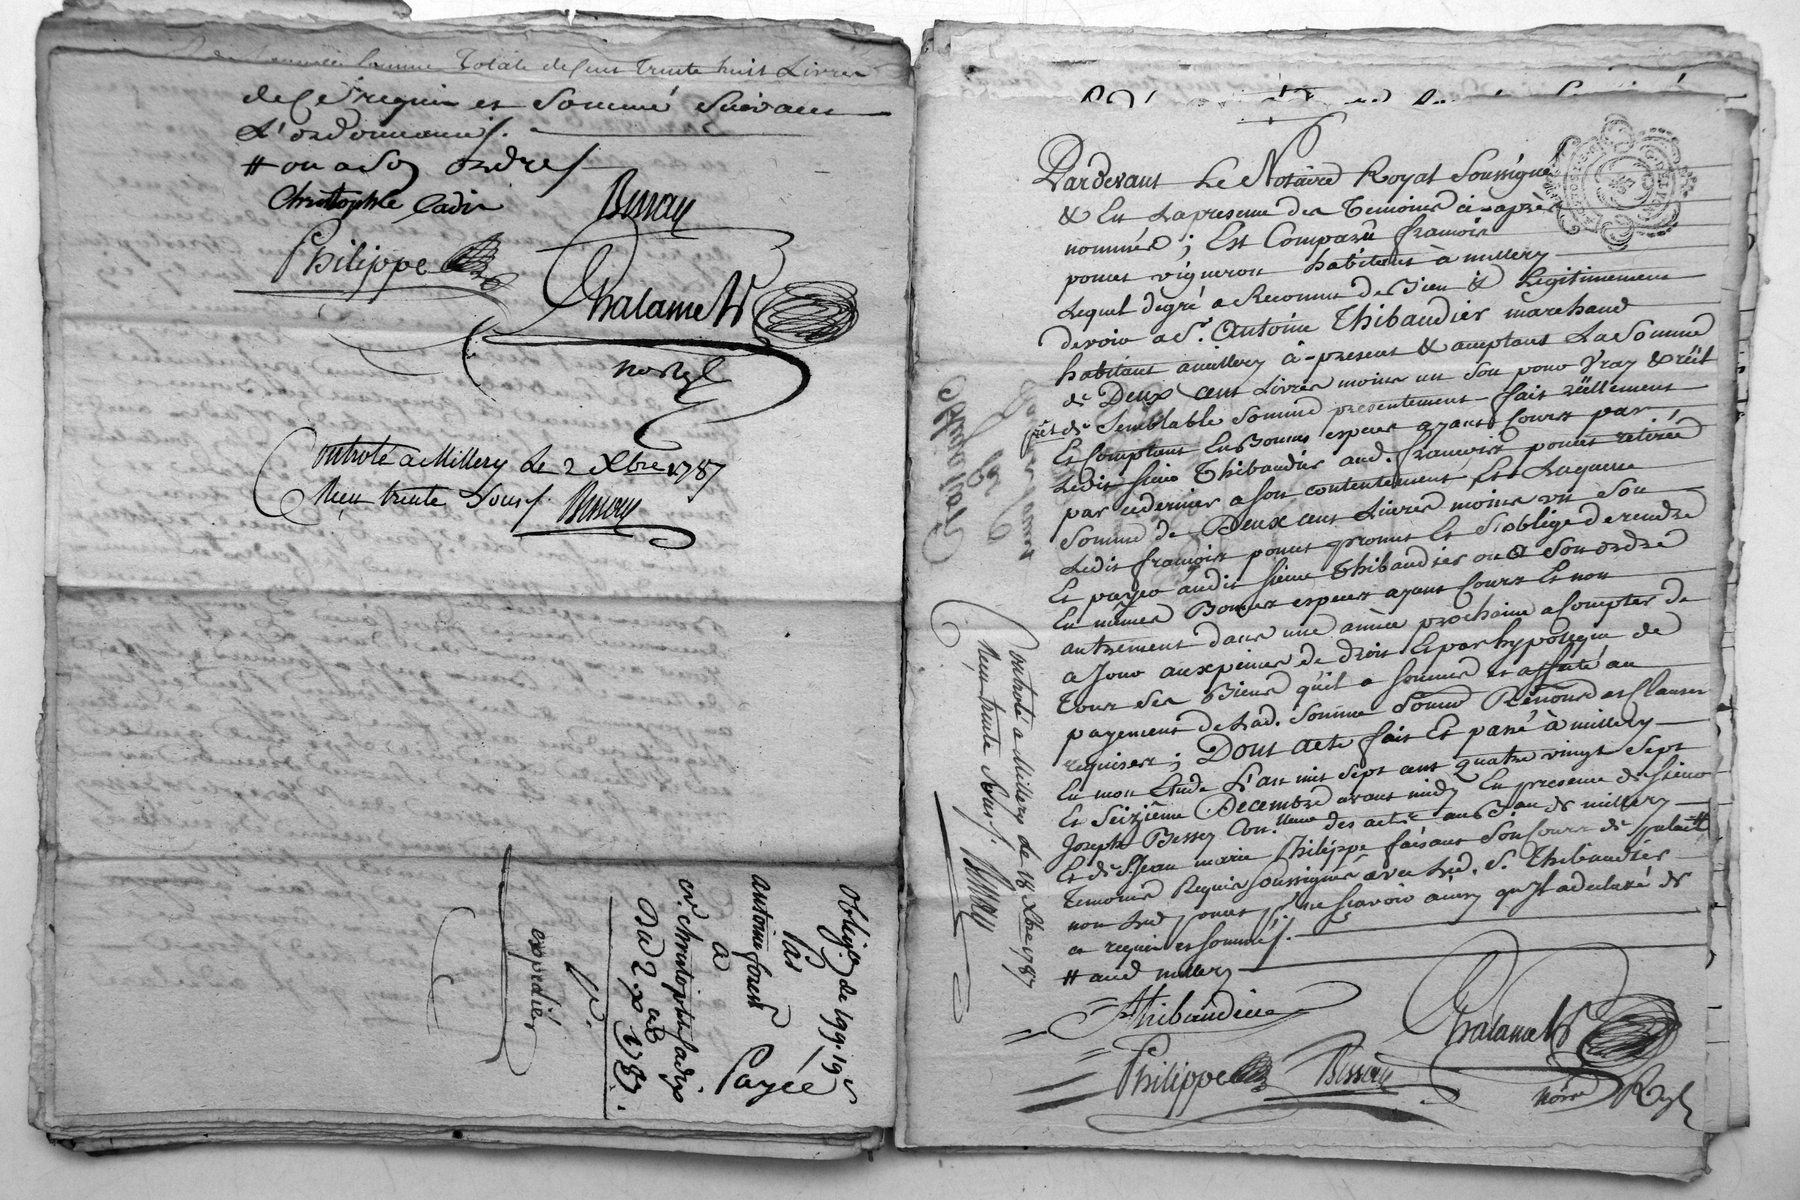 somme Totale de Cent Trente huit Livres
de Ce requis et Sommé Suivant
L'ordonnance /.
# ou a Son ordre /
Christophle Cadix
Bessay
Philippe
Chalamel
Controlé a Millery Le 2 Xbre 1787
Reçu trente Sous /. Bessay
Obligaõn de 199.19ˢ
Par
antoine forest
a
christophle Cadix
Du 2 Xbre 1787.
Payée
expedié,
Pardevant Le Notaire Royal Soussigné
& En La presence des Temoins ci-après
nommés ; Est Comparû francois
poncet vigneron habitant à millery
Lequel degré a Reconnu de Bien & Legitimement
devoir a Sʳ. Antoine Thibaudier marchand
habitant amillery à-present & acceptant La Somme
de Deux cent Livres moins un Sou pour Vray & réel
prêt de Semblable Somme presentement fait réellement
Et Comptant En Bonnes especes ayant Cours par
Ledit Sieur Thibaudier aud. francois poncet retirée
par cedernier a Son contentement Et Laquelle
Somme de Deux cent Livres moins un Sou
Ledit francois poncet promet Et S'oblige de rendre
Et payer audit Sieur Thibaudier ou a Son ordre
En mêmes Bonnes especes ayant Cours Et non
autrement dans une année prochaine a Compter de
a Jour aux peines de droit Et par hypoteque de
Tous Ses Biens qu'il a Soumis et affecté au
payement de Lad. Somme Soumis Renoncé et Clauses
requises ; Dont acte fait Et passé à millery
En mon Etude L'an mil Sept cent quatre vingt Sept
Et Seizième Decembre avant midy En presence de Sieur
Joseph Bessey Con.lleur des actes au B.au de millery
Et de S. Jean marie Philippe faisant Son Cours de pratiq #
Temoins Requis Soussignés avec Led. S. Thibaudier
non Led poncet pour ne Scavoir ainsy qu'il a declaré de
ce requis et Sommé /.
# aud millery
Thibaudier
Chalamel
Philippe Bessay
Nore Royl
Controlé a Millery Le 18 Xbre 1787
Reçu trente Sous /. Bessay